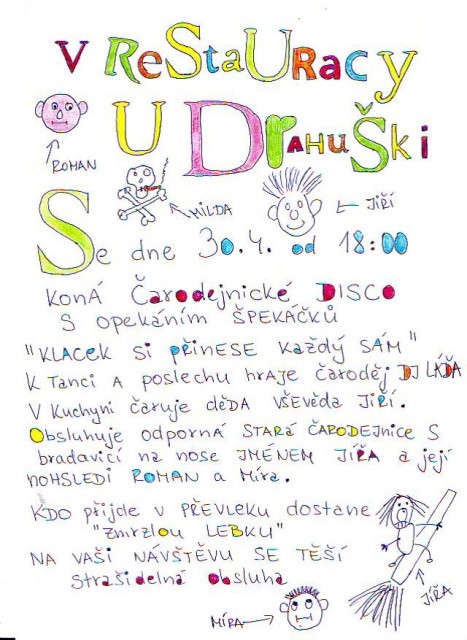 V ReStaURacy
U DrahuŠki
ROMAN
HILDA
JIŘÍ
Se dne 30.4. od 18:00
KONÁ Čarodejnické DISCO
S opekáním ŠPEKÁČKŮ
"KLACEK Si PŘINESE KAŽDÝ SÁM"
K Tanci A poslechu hraje čaroděj DJ LÁĎA
V Kuchyni čaruje děda VŠEVěda Jiří.
Obsluhuje odporná STARÁ ČARODEJNICE S
bradavicí na nose JMÉNEM JÍŘA a její
NOHSLEDI ROMAN a Míra.
KDO přijde v PŘEVLEKU dostane
"Zmrzlou LEBKU"
NA VAŠI NÁVŠTĚVU SE TĚŠÍ
Strašidelná obsluha
JÍŘA
MÍRA